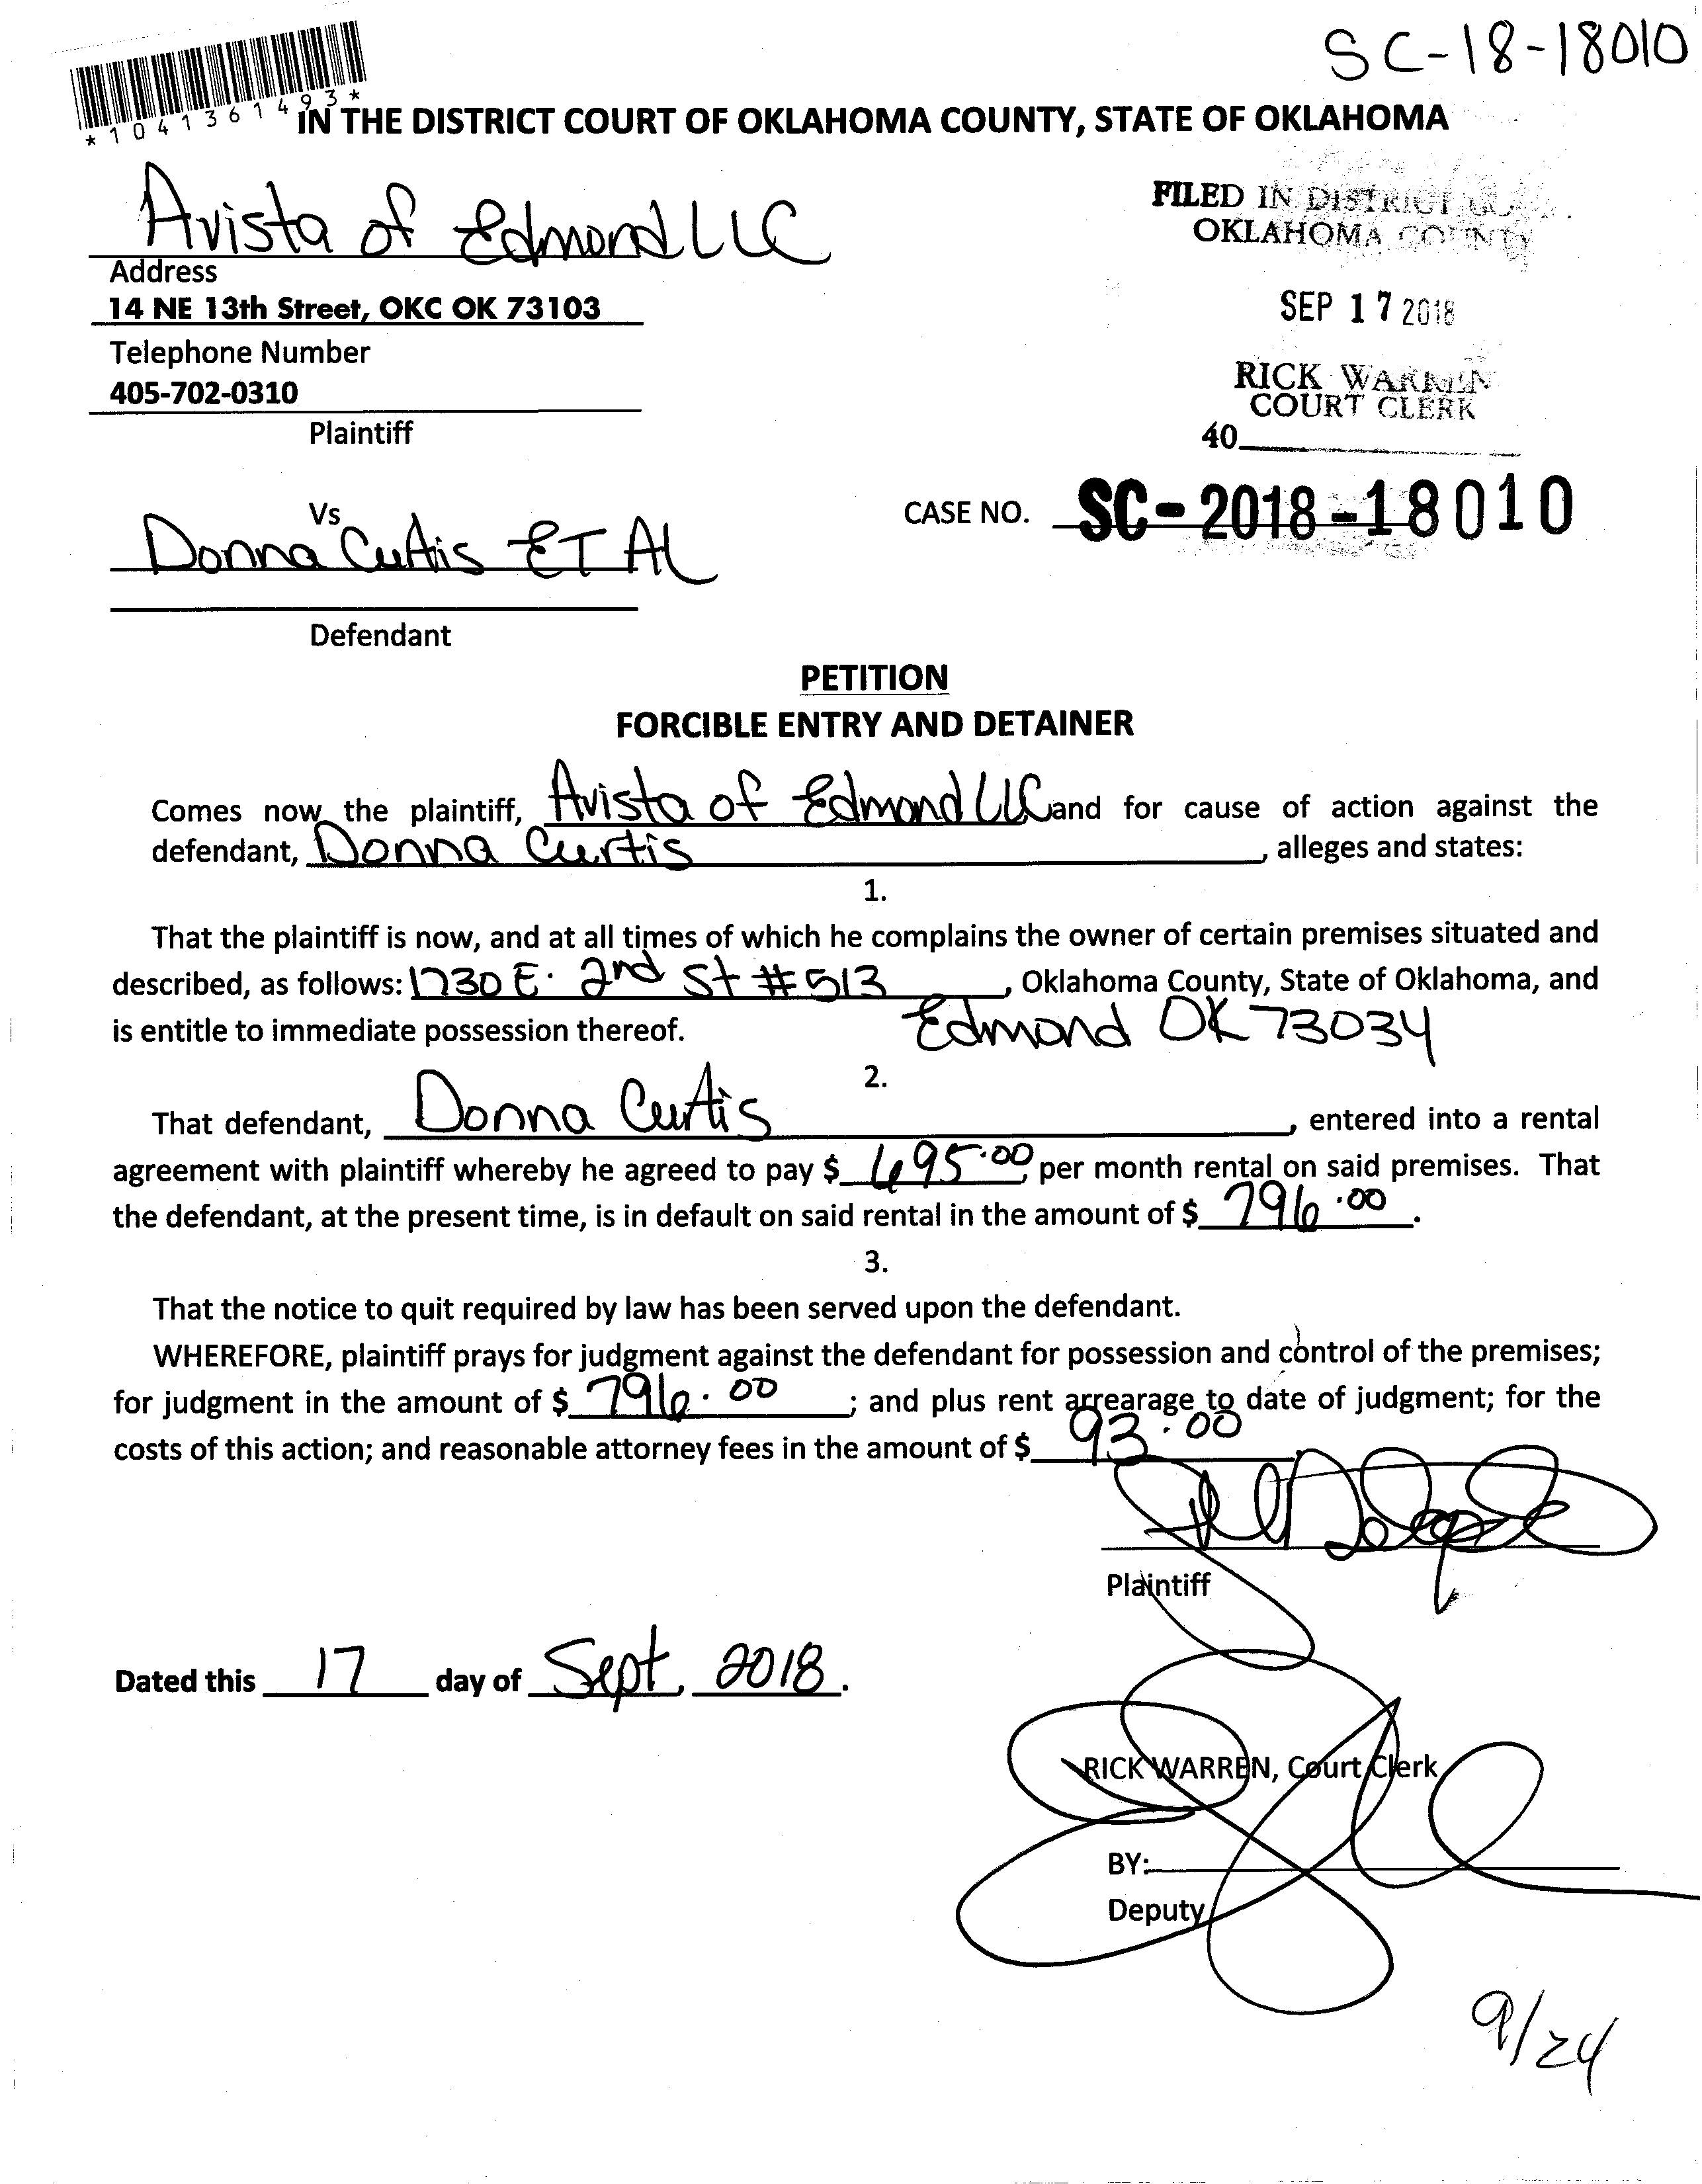 SC-18-18010
*1041361493*
IN THE DISTRICT COURT OF OKLAHOMA COUNTY, STATE OF OKLAHOMA
Avista of Edmond LLC
Address
14 NE 13th Street, OKC OK 73103
Telephone Number
405-702-0310
Plaintiff
FILED IN DISTRICT
OKLAHOMA COUNTY
SEP 17 2018
RICK WARREN
COURT CLERK
40
Vs
Donna Curtis ET AL
Defendant
CASE NO. SC-2018-18010
PETITION
FORCIBLE ENTRY AND DETAINER
Comes now the plaintiff, Avista of Edmond LLC and for cause of action against the
defendant, Donna Curtis, alleges and states:
1.
That the plaintiff is now, and at all times of which he complains the owner of certain premises situated and
described, as follows: 1730 E. 2nd St #513, Oklahoma County, State of Oklahoma, and
is entitle to immediate possession thereof. Edmond OK 73034
2.
That defendant, Donna Curtis, entered into a rental
agreement with plaintiff whereby he agreed to pay $ 695.00, per month rental on said premises. That
the defendant, at the present time, is in default on said rental in the amount of $ 796.00.
3.
That the notice to quit required by law has been served upon the defendant.
WHEREFORE, plaintiff prays for judgment against the defendant for possession and control of the premises;
for judgment in the amount of $ 796.00; and plus rent arrearage to date of judgment; for the
costs of this action; and reasonable attorney fees in the amount of $ 93.00
Plaintiff
Dated this 17 day of Sept, 2018.
RICK WARREN, Court Clerk
BY:
Deputy
9/24